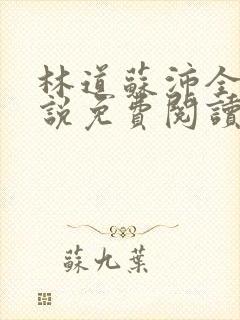 林道蘇沛全
說免費閱讀
蘇九葉